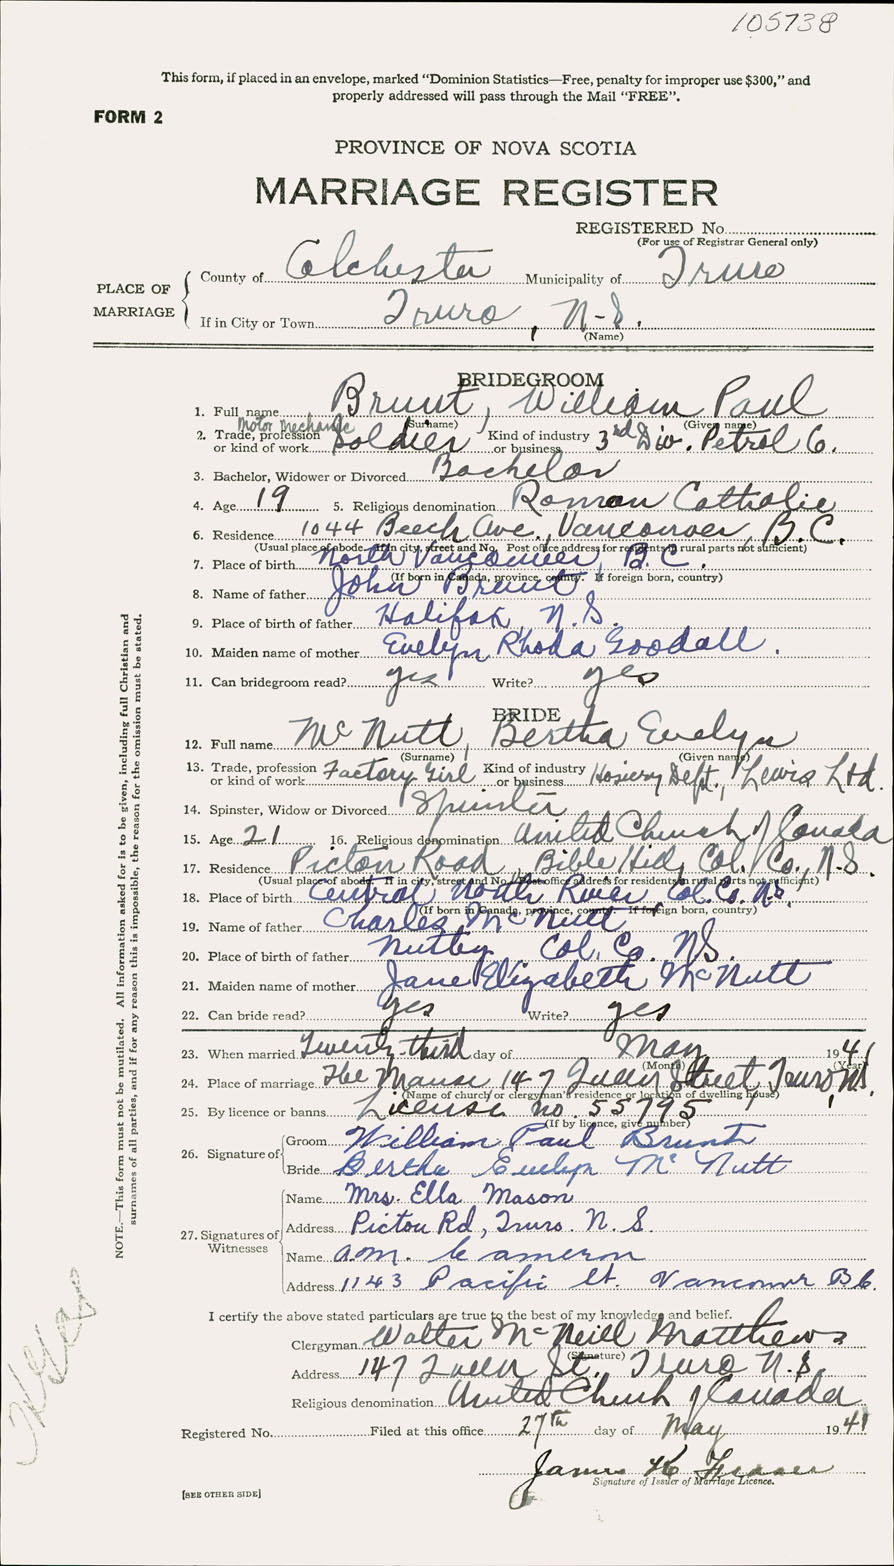 105738
This form, if placed in an envelope, marked "Dominion Statistics—Free, penalty for improper use $300," and
properly addressed will pass through the Mail "FREE".
FORM 2
PROVINCE OF NOVA SCOTIA
MARRIAGE REGISTER
REGISTERED No.
(For use of Registrar General only)
PLACE OF MARRIAGE
County of Colchester Municipality of Truro
If in City or Town Truro, N-S.
(Name)
BRIDEGROOM
1. Full name Brunt, William Paul
(Surname) (Given name)
Motor Mechanic
2. Trade, profession or kind of work Soldier Kind of industry or business 3rd Div. Petrol Co.
3. Bachelor, Widower or Divorced Bachelor
4. Age 19 5. Religious denomination Roman Catholic
6. Residence 1044 Beech Ave., Vancouver, B.C.
(Usual place of abode. If in city, street and No. Post office address for residents in rural parts not sufficient)
7. Place of birth North Vancouver, B.C.
(If born in Canada, province, county. If foreign born, country)
8. Name of father John Brunt
9. Place of birth of father Halifax, N.S.
10. Maiden name of mother Evelyn Rhoda Goodall.
11. Can bridegroom read? yes Write? yes
BRIDE
12. Full name McNutt, Bertha Evelyn
(Surname) (Given name)
13. Trade, profession or kind of work Factory Girl Kind of industry or business Hosiery Dept., Lewis Ltd.
14. Spinster, Widow or Divorced Spinster
15. Age 21 16. Religious denomination United Church of Canada
17. Residence Pictou Road Bible Hill, Col. Co., N.S.
(Usual place of abode. If in city, street and No. Post office address for residents in rural parts not sufficient)
18. Place of birth Central North River, Col. Co. N.S.
(If born in Canada, province, county. If foreign born, country)
19. Name of father Charles McNutt
20. Place of birth of father Nuttby Col. Co. N.S.
21. Maiden name of mother Jane Elizabeth McNutt
22. Can bride read? yes Write? yes
23. When married Twenty-third day of May 1941
(Month) (Year)
24. Place of marriage The Manse 147 Queen Street, Truro, N.S.
(Name of church or clergyman's residence or location of dwelling house)
25. By licence or banns License no. 55795
(If by licence, give number)
26. Signature of
Groom William Paul Brunt
Bride Bertha Evelyn McNutt
27. Signatures of Witnesses
Name Mrs. Ella Mason
Address Pictou Rd, Truro. N.S.
Name A.M. Cameron
Address 1143 Pacific St. Vancouver B.C.
I certify the above stated particulars are true to the best of my knowledge and belief.
Clergyman Walter McNeill Matthews
(Signature)
Address 147 Queen St. Truro N.S.
Religious denomination United Church of Canada
Registered No. Filed at this office 27th day of May 1941
James K Fraser
Signature of Issuer of Marriage Licence.
[SEE OTHER SIDE]
NOTE.—This form must not be mutilated. All information asked for is to be given, including full Christian and
surnames of all parties, and if for any reason this is impossible, the reason for the omission must be stated.